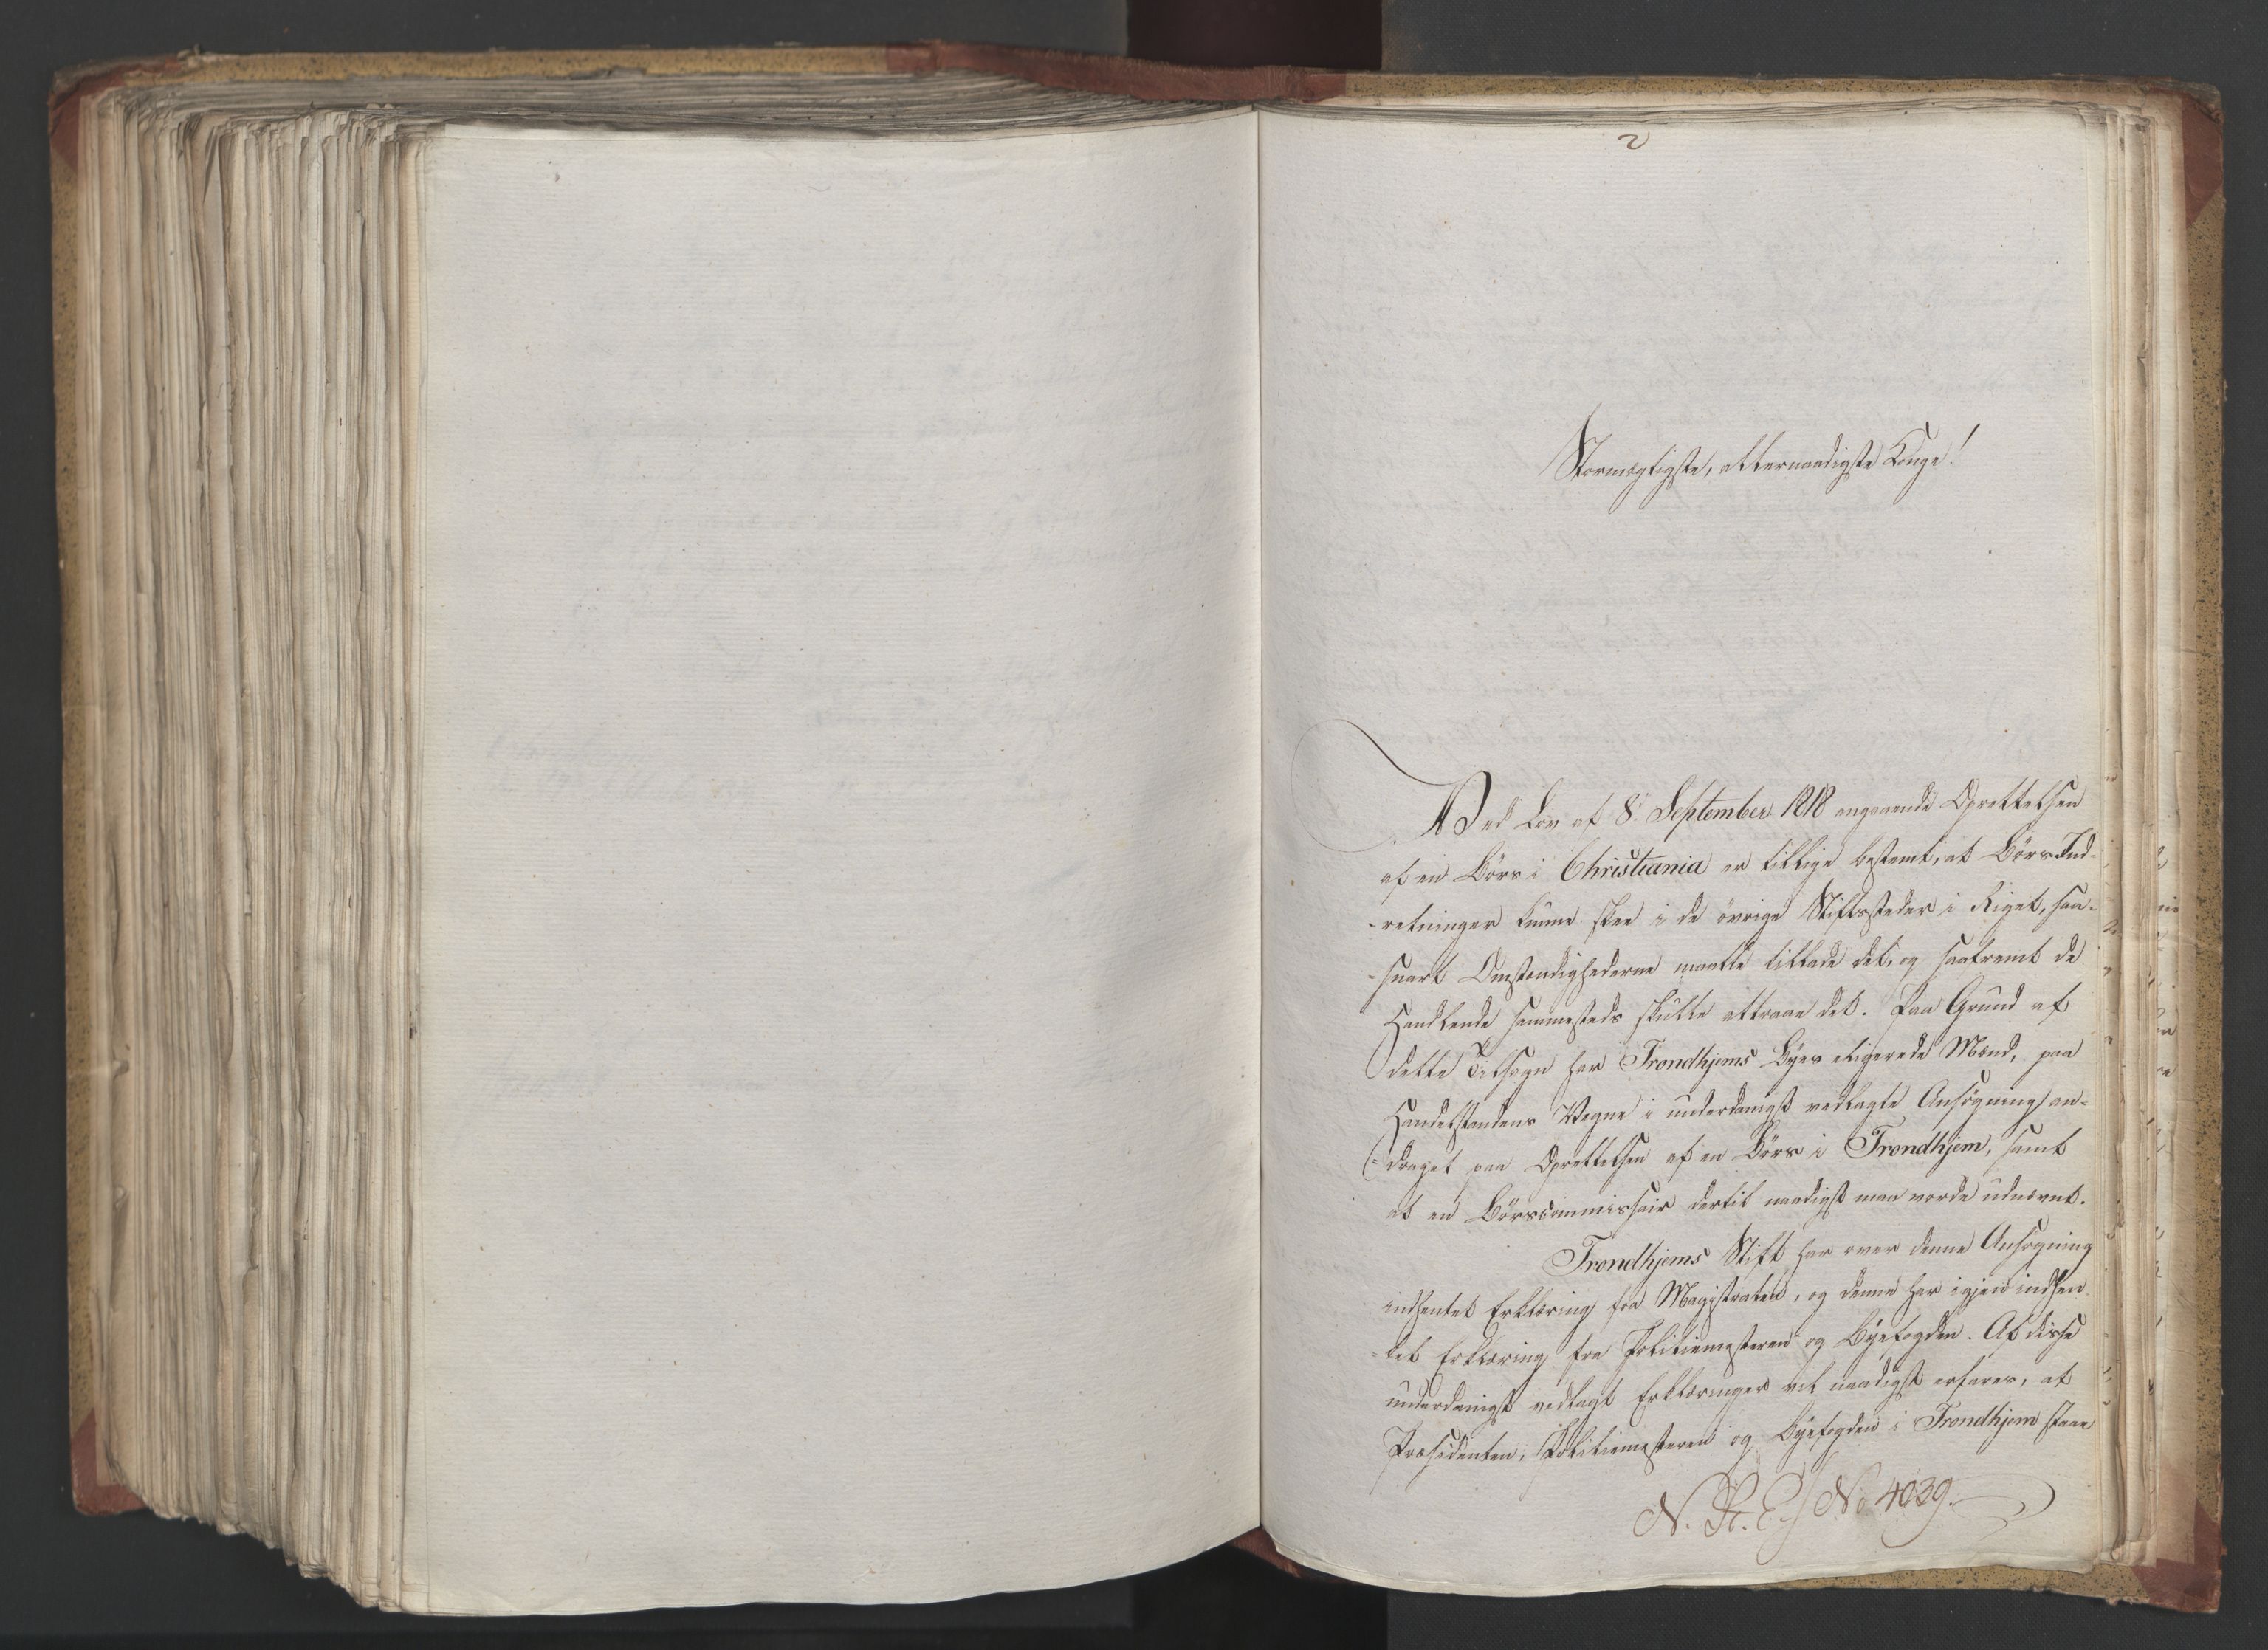 2
Stormægtigste, allernaadigste Konge!
Ved Lov af 8de September 1818 angaaende Oprettelsen
af en Börs i Christiania er tillige bestemt, at Börs-Ind-
-retninger kunne skee i de övrige Stiftsstæder i Riget, saa-
-snart Omstændighederne maatte tillade det, og saafremt de
Handlende sammesteds skulle attraae det. Paa Grund af
dette Tilsagn har Trondhjems Byes eligerede Mænd, paa
Handelstandens Vegne i underdanigst vedlagte Ansögning an-
-draget paa Oprettelsen af en Börs i Trondhjem, samt
at en Börscommissair dertil naadigst maa vorde udnævnt.
Trondhjems Stift har over denne Ansögning
indhentet Erklæring fra Magistraten, og denne har igjen indhen-
-tet Erklæring fra Politiemesteren og Byefogden. Af disse
underdanigst vedlagt Erklæringer vil naadigst erfares, at
Præsidenten, Politiemesteren og Byefogden i Trondhjem staae
N. R. E. No 4039.